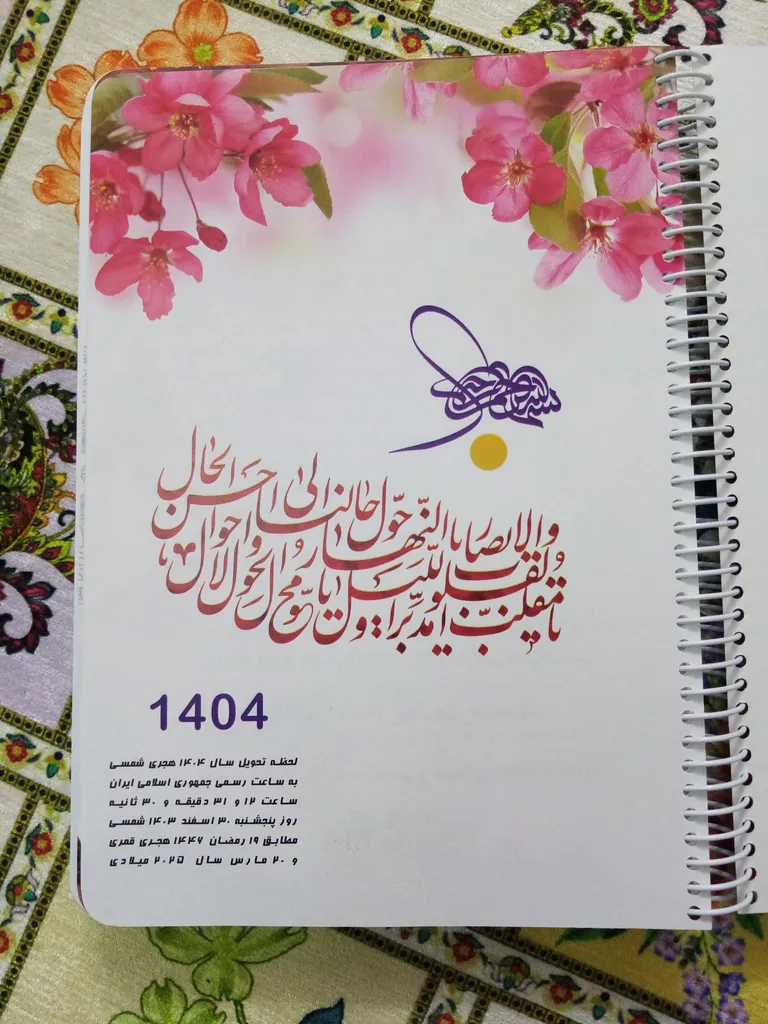 بسم الله الرحمن الرحیم
یا مقلب القلوب والابصار
یا مدبر اللیل والنهار
یا محول الحول والاحوال
حول حالنا الی احسن الحال
1404
لحظه تحویل سال ۱۴۰۴ هجری شمسی
به ساعت رسمی جمهوری اسلامی ایران
ساعت ۱۲ و ۳۱ دقیقه و ۳۰ ثانیه
روز پنجشنبه ۳۰ اسفند ۱۴۰۳ شمسی
مطابق ۱۹ رمضان ۱۴۴۶ هجری قمری
و ۲۰ مارس سال ۲۰۲۵ میلادی